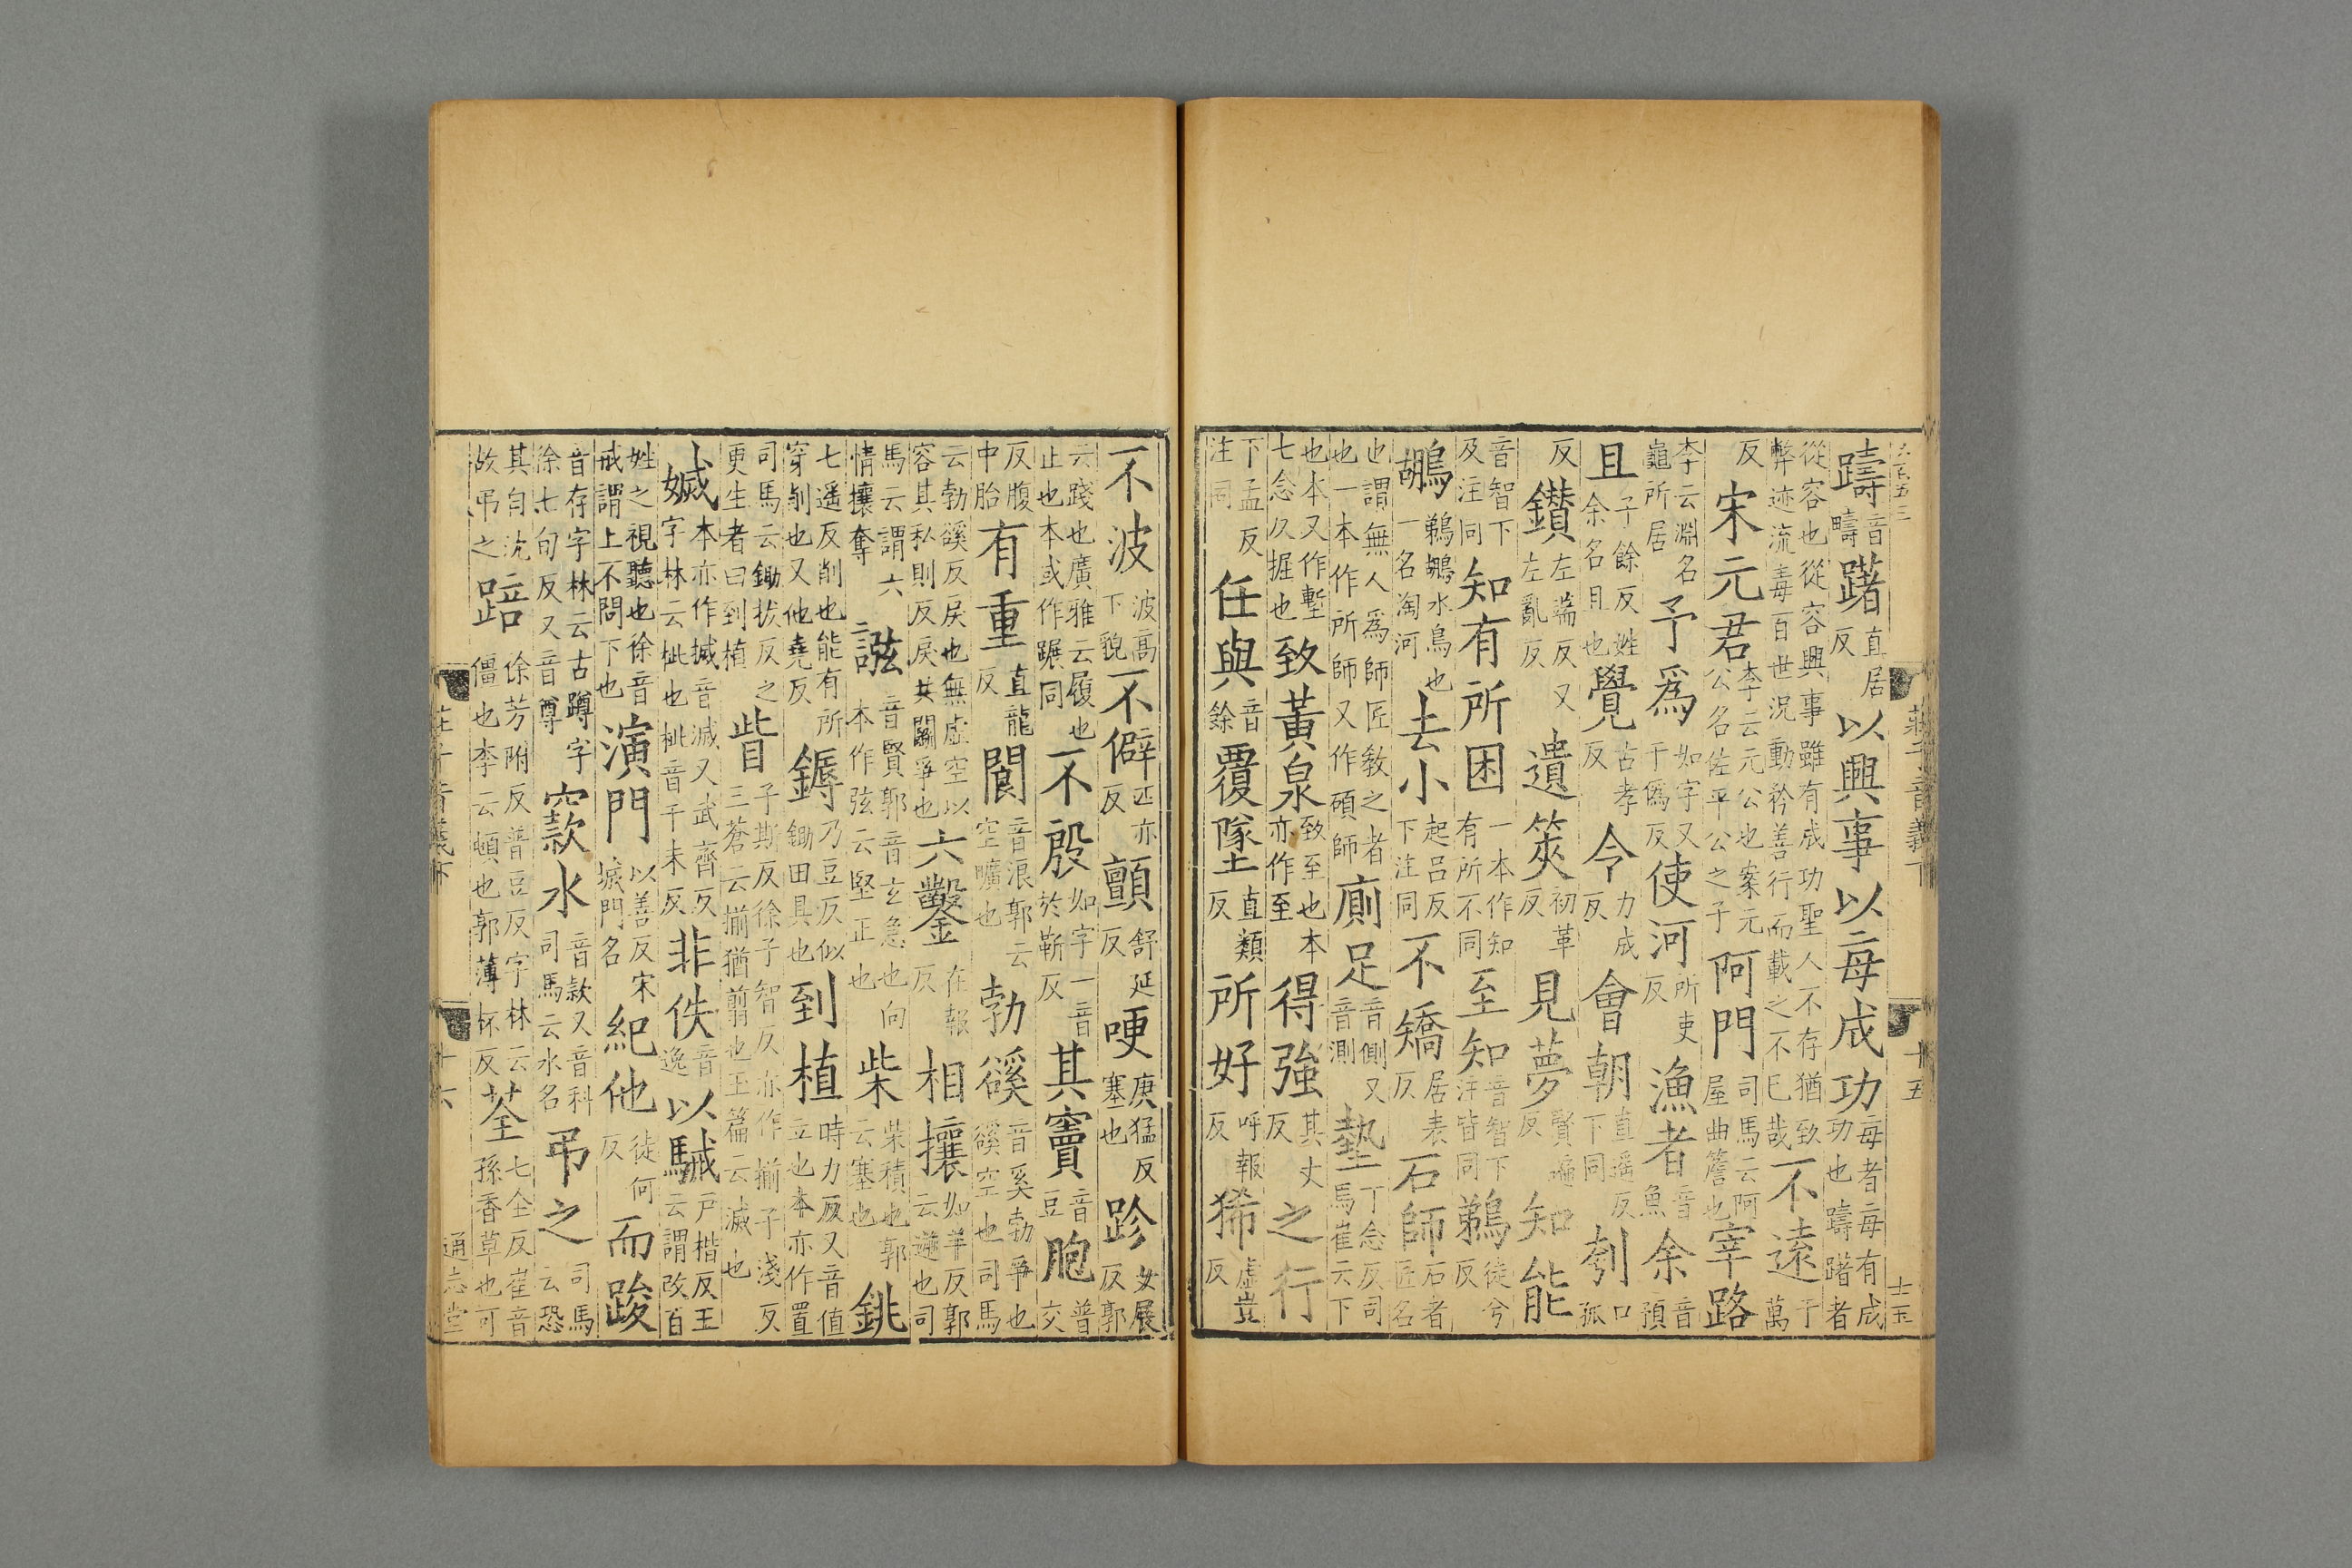 大百五三 莊子音義下 十五 士玉
躊音疇躇直居反以興事以每成功每者每有成功也躊躇者
從容也從容興事雖有成功聖人不存猶致弊迹流毒百世況動矜善行而載之不已哉不遠于萬
反宋元君李云元公也案元公名佐平公之子阿門司馬云阿屋曲簷也宰路
李云淵名龜所居予爲如字又于僞反使河所吏反漁者音魚余音預
且子餘反姓余名且也覺古孝反令力成反會朝直遥反下同刳口孤
反鑽左端反又左亂反遺筴初革反見夢賢遍反知能
音智下及注同知有所困一本作知有所不同至知音智下注皆同鵜徒兮反
鶘鵜鶘水鳥也一名淘河去小起吕反下注同不矯居表反石師石者匠名
也謂無人爲師匠教之者也一本作所師又作碩師廁足音側又音測墊丁念反司馬崔云下
也本又作塹七念久掘也致黃泉致至也本亦作至得強其丈反之行
下孟反注同任與音餘覆墜直類反所好呼報反狶虛豈反
不波波高下貌不僻匹亦反顫舒延反哽庚猛反塞也跈女展反郭
云踐也廣雅云履也止也本或作蹍同不殷如字一音於靳反其竇音豆胞普交
反腹中胎有重直龍反閬音浪郭云空曠也勃谿音奚勃爭也谿空也司馬
云勃谿反戾也無虛空以容其私則反戾共鬬爭也六鑿在報反相攘如羊反郭云逆也司
馬云謂六情攘奪二誸音賢郭音玄急也向本作弦云堅正也柴柴積也郭云塞也銚
七遥反削也能有所穿削也又他堯反鎒乃豆反似鋤田具也到植時力反又音值立也本亦作置
司馬云鋤拔反之更生者曰到植眥子斯反徐子智反亦作揃子淺反三蒼云揃猶翦也玉篇云滅也
媙本亦作搣音滅又武齊反字林云枇也枇音千米反非佚音逸以駴戶楷反王云謂改百
姓之視聽也徐音戒謂上不問下也演門以善反宋城門名紀他徒何反而踆
音存字林云古蹲字徐七旬反又音尊窾水音款又音科司馬云水名弔之司馬云恐
其自沈故弔之踣徐芳附反普豆反字林云僵也李云頓也郭薄杯反荃七全反崔音孫香草也可
莊子音義下 十六 通志堂